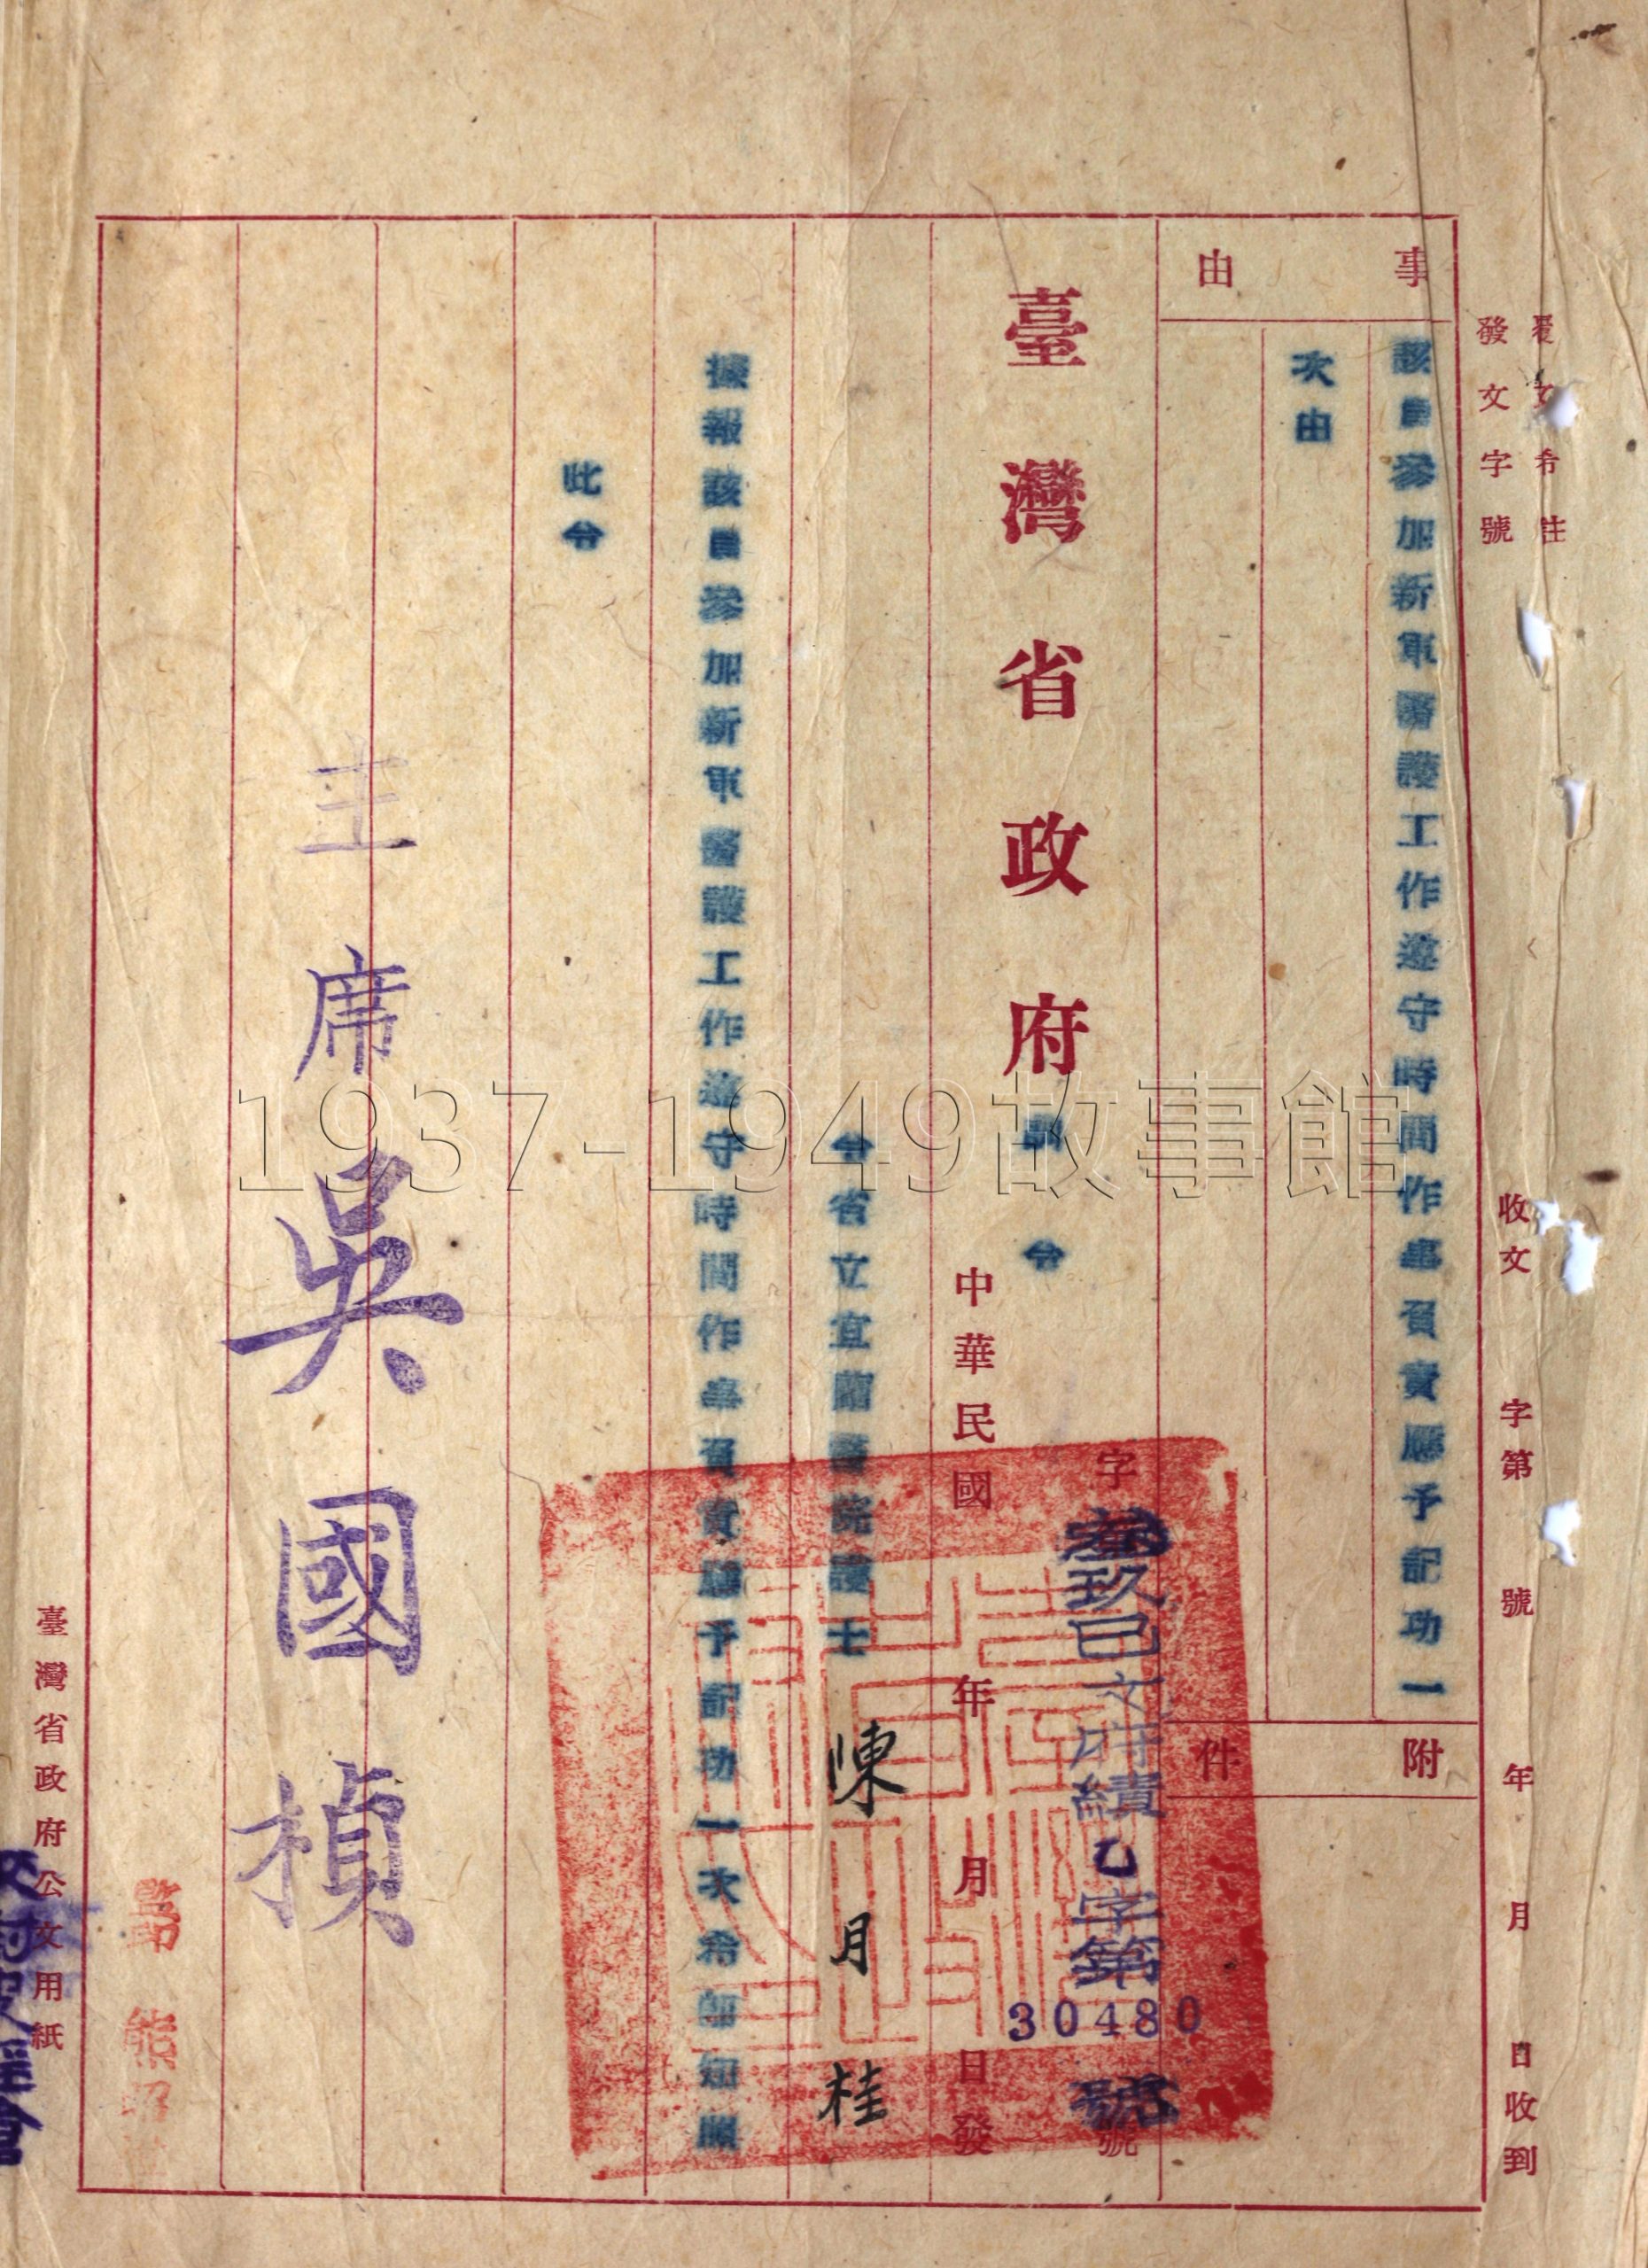 覆文希註
發文字號
收文 字第 號 年 月 日收到
事由
該員參加新軍醫護工作遵守時間作事負責應予記功一
次由
附件
臺灣省政府 訓令
字 號
叁玖巳文府績乙字第30480號
中華民國 年 月 日發
令省立宜蘭醫院護士 陳月桂
據報該員參加新軍醫護工作遵守時間作事負責應予記功一次希即知照
此令
主席吳國楨
臺灣省政府公文用紙
1937-1949故事館